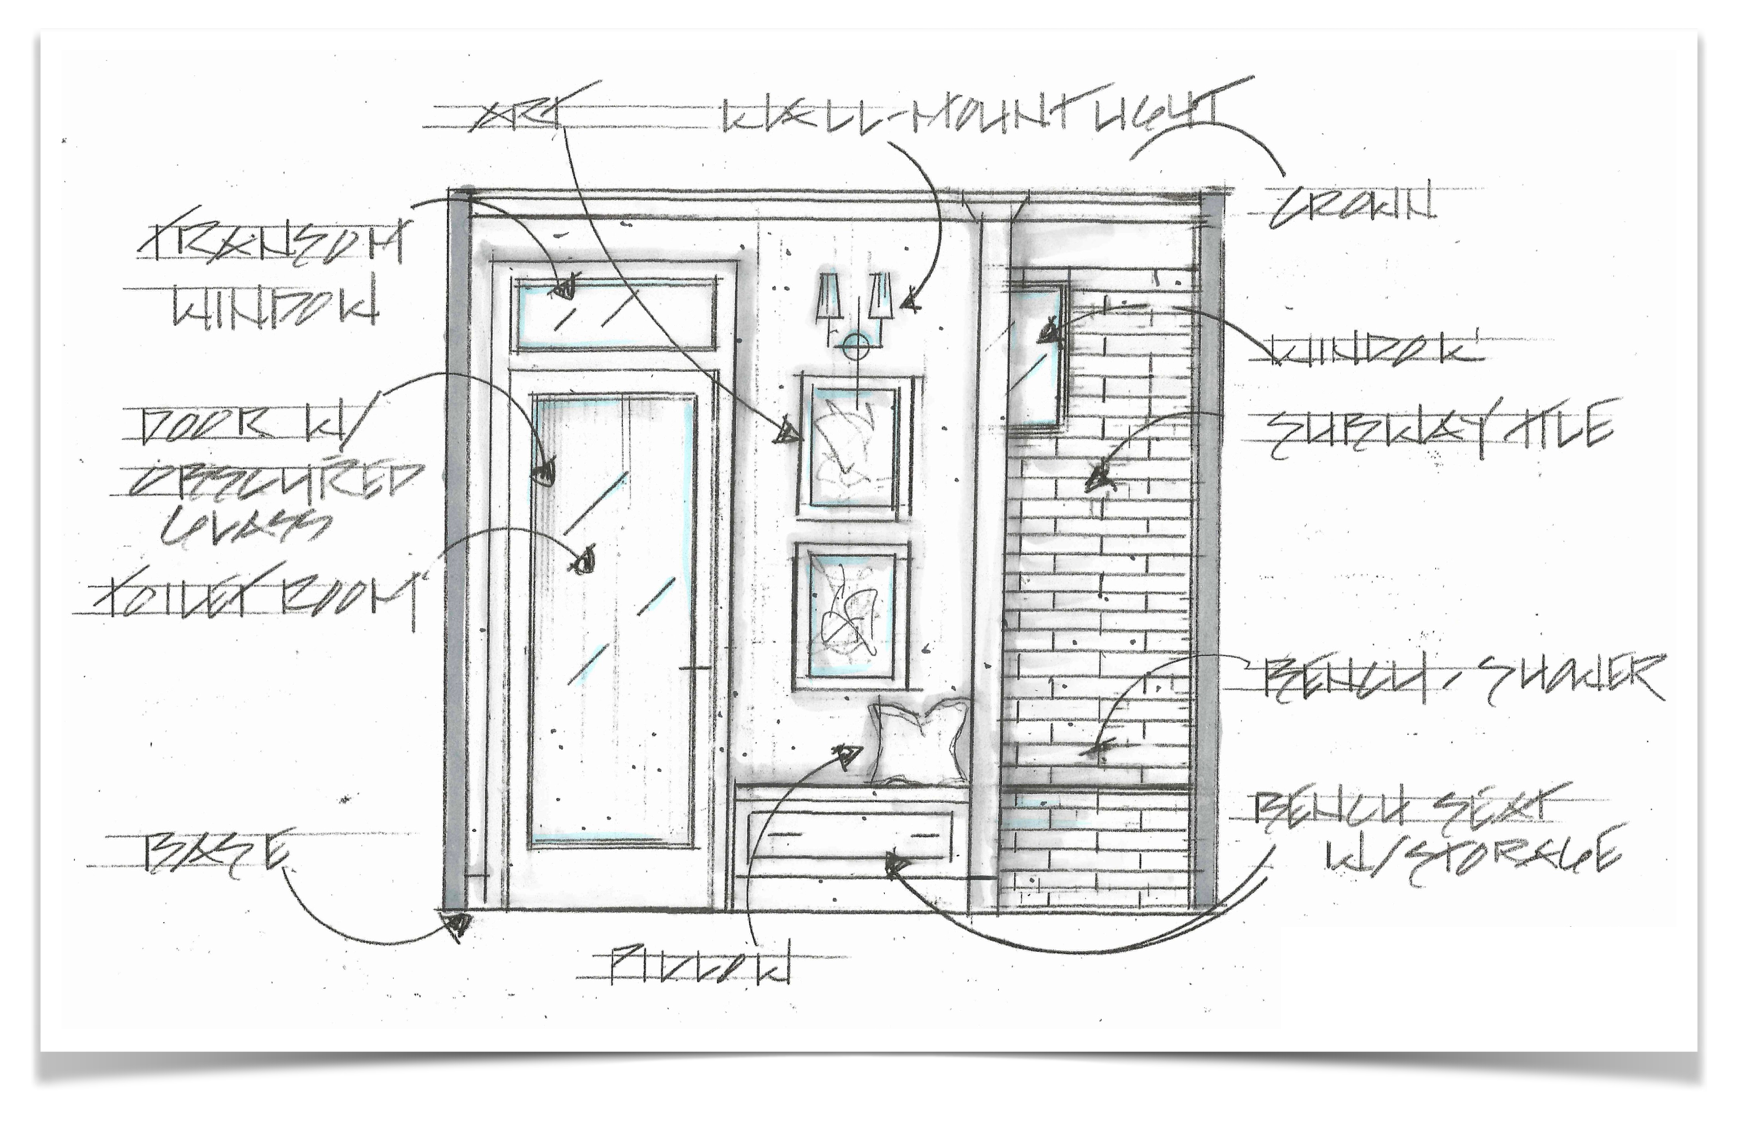 ART
WALL-MOUNT LIGHT
CROWN
TRANSOM
WINDOW
WINDOW
DOOR W/
OBSCURED
GLASS
SUBWAY TILE
TOILET ROOM
BENCH - SHOWER
BENCH SEAT
W/STORAGE
BASE
PILLOW